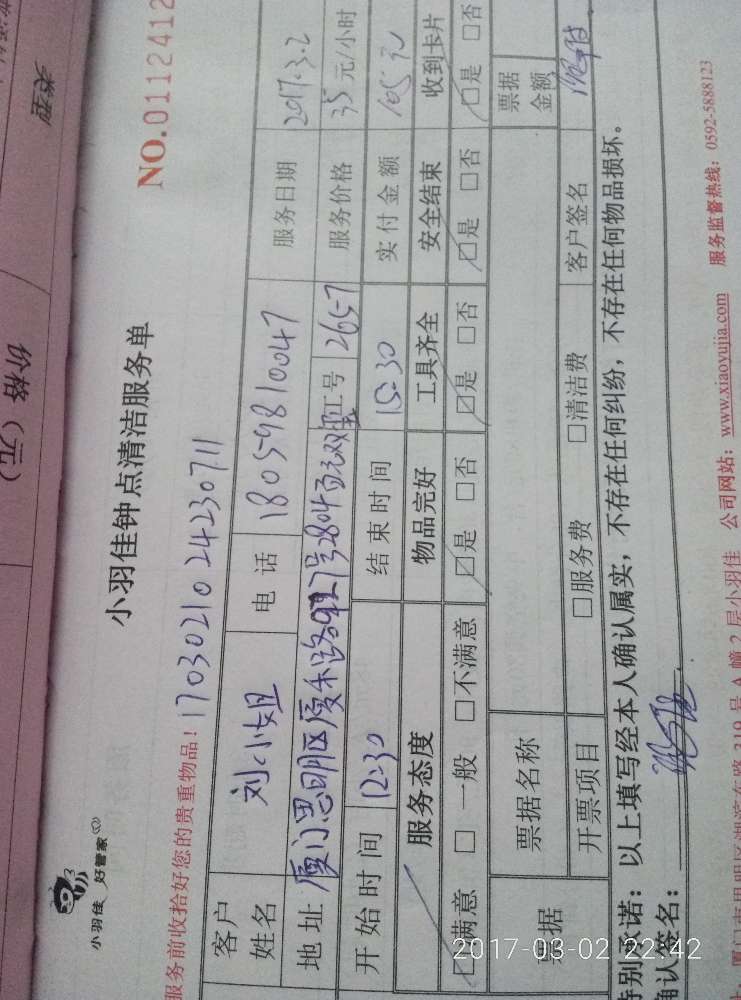 类型
价格（元）
小羽佳 好管家
小羽佳钟点清洁服务单
NO.0112412
服务前收拾好您的贵重物品！1703021024230711
客户姓名 刘小姐 电话 18059810047 服务日期 2017.3.2
地址 厦门思明区厦禾路927号2804 工号 2657 服务价格 35元/小时
开始时间 12:30 结束时间 15:30 实付金额 105元
服务态度 物品完好 工具齐全 安全结束 收到卡片
☑满意 □一般 □不满意 ☑是 □否 ☑是 □否 ☑是 □否 ☑是 □否
票据 票据名称 票据金额
开票项目 □服务费 □清洁费 客户签名
特别承诺：以上填写经本人确认属实，不存在任何纠纷，不存在任何物品损坏。
确认签名：
厦门市思明区湖滨东路319号A幢2层小羽佳 公司网站：www.xiaoyujia.com 服务监督热线：0592-5888123
2017-03-02 22:42